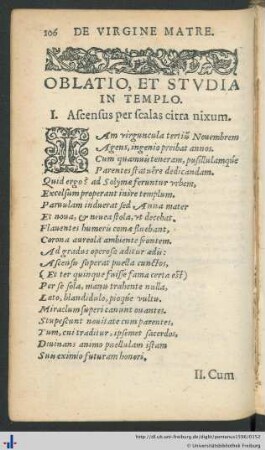 106 DE VIRGINE MATRE.
OBLATIO, ET STVDIA
IN TEMPLO.
I. Ascensus per scalas citra nixum.
IAm virguncula tertiũ Nouembrem
Agens, ingenio probat annos.
Cum quamuis teneram, pusillulamq́ue
Parentes statuêre dedicandam.
Quid ergo? ad Solymæ feruntur vrbem,
Excelsum properant inire templum.
Paruulam induerat sed Anna mater
Et noua, & niuea stola, vt decebat,
Flauentes humeris comæ fluebant,
Corona aureola ambiente frontem.
Ad gradus operoso aditur ædis:
Ascensu superat puella cunctos,
(Et ter quinque fuisse fama certa est)
Per se sola, manu trahente nulla,
Læto, blandidulo, pioque vultu.
Miraclum superi canunt ouantes.
Stupescunt nouitate cum parentes,
Tum, cui traditur, ipsemet sacerdos,
Diuinans animo puellulam istam
Suo eximio futuram honori,
II. Cum